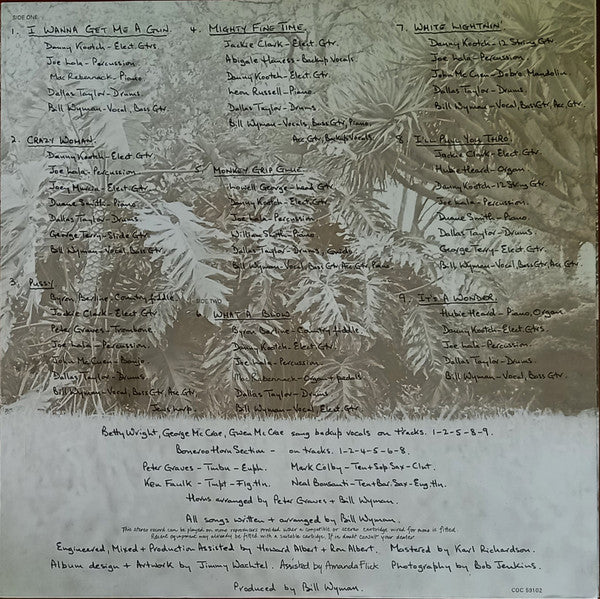 SIDE ONE
1. I WANNA GET ME A GUN
Danny Kootch - Elect. Gtrs
Joe Lala - Percussion.
Mac Rebennack - Piano.
Dallas Taylor - Drums
Bill Wyman - Vocal, Bass Gtr.
2. CRAZY WOMAN.
Danny Kootch - Elect. Gtr.
Joe Lala - Percussion
Joey Murcia - Elect. Gtr.
Duane Smith - Piano.
Dallas Taylor - Drums.
George Terry - Slide Gtr.
Bill Wyman - Vocal, Bass Gtr.
3. PUSSY
Byron Berline - Country fiddle
Jackie Clark - Elect Gtr
Peter Graves - Trombone
Joe Lala - Percussion.
John McCuen - Banjo.
Dallas Taylor - Drums.
Bill Wyman - Vocal, Bass Gtr, Acc Gtr,
Jews harp.
4. MIGHTY FINE TIME.
Jackie Clark - Elect. Gtr.
Abigale Haness - Backup Vocals.
Danny Kootch - Elect. Gtr.
Leon Russell - Piano.
Dallas Taylor - Drums
Bill Wyman - Vocals, Bass Gtr, Piano.
Acc Gtr, Backup Vocals.
5. MONKEY GRIP GLUE
Lowell George - Lead Gtr
Danny Kootch - Elect. Gtr.
Joe Lala - Percussion
William Smith - Piano
Dallas Taylor - Drums,
Bill Wyman - Vocal, Bass Gtr, Acc Gtr, Piano
SIDE TWO
6. WHAT A BLOW
Byron Berline - Country fiddle.
Danny Kootch - Elect. Gtr.
Joe Lala - Percussion
Mac Rebennack - Organ + pedals
Dallas Taylor - Drums
Bill Wyman - Vocal, Elect. Gtr
7. WHITE LIGHTNIN'
Danny Kootch - 12 String Gtr.
Joe Lala - Percussion.
John McCuen - Dobro. Mandolin.
Dallas Taylor - Drums.
Bill Wyman - Vocal, Bass Gtr, Acc Gtr.
8. I'LL PULL YOU THRO.
Jackie Clark - Elect. Gtr.
Hubie Heard - Organ.
Danny Kootch - 12 String Gtr
Joe Lala - Percussion.
Duane Smith - Piano.
Dallas Taylor - Drums
George Terry - Elect. Gtr.
Bill Wyman - Vocal, Bass Gtr, Acc Gtr.
9. IT'S A WONDER.
Hubie Heard - Piano, Organ
Danny Kootch - Elect. Gtrs.
Joe Lala - Percussion.
Dallas Taylor - Drums
Bill Wyman - Vocal, Bass Gtr.
Betty Wright, George McCrae, Gwen McCrae sang backup vocals on tracks. 1-2-5-8-9.
Bonaroo Horn Section - on tracks. 1-2-4-5-6-8.
Peter Graves - Tmbn - Euph. Mark Colby - Ten + Sop. Sax - Clnt.
Ken Faulk - Tmpt - Flg. Hn. Neal Bonsanti - Ten + Bar. Sax - Eng. Hn.
Horns arranged by Peter Graves + Bill Wyman.
All songs written + arranged by Bill Wyman.
This stereo record can be played on mono reproducers provided either a compatible or stereo cartridge wired for mono is fitted.
Recent equipment may already be fitted with a suitable cartridge. If in doubt consult your dealer
Engineered, Mixed + Production Assisted by Howard Albert + Ron Albert. Mastered by Karl Richardson.
Album design + Artwork by Jimmy Wachtel. Assisted by Amanda Flick. Photography by Bob Jenkins.
Produced by Bill Wyman.
COC 59102